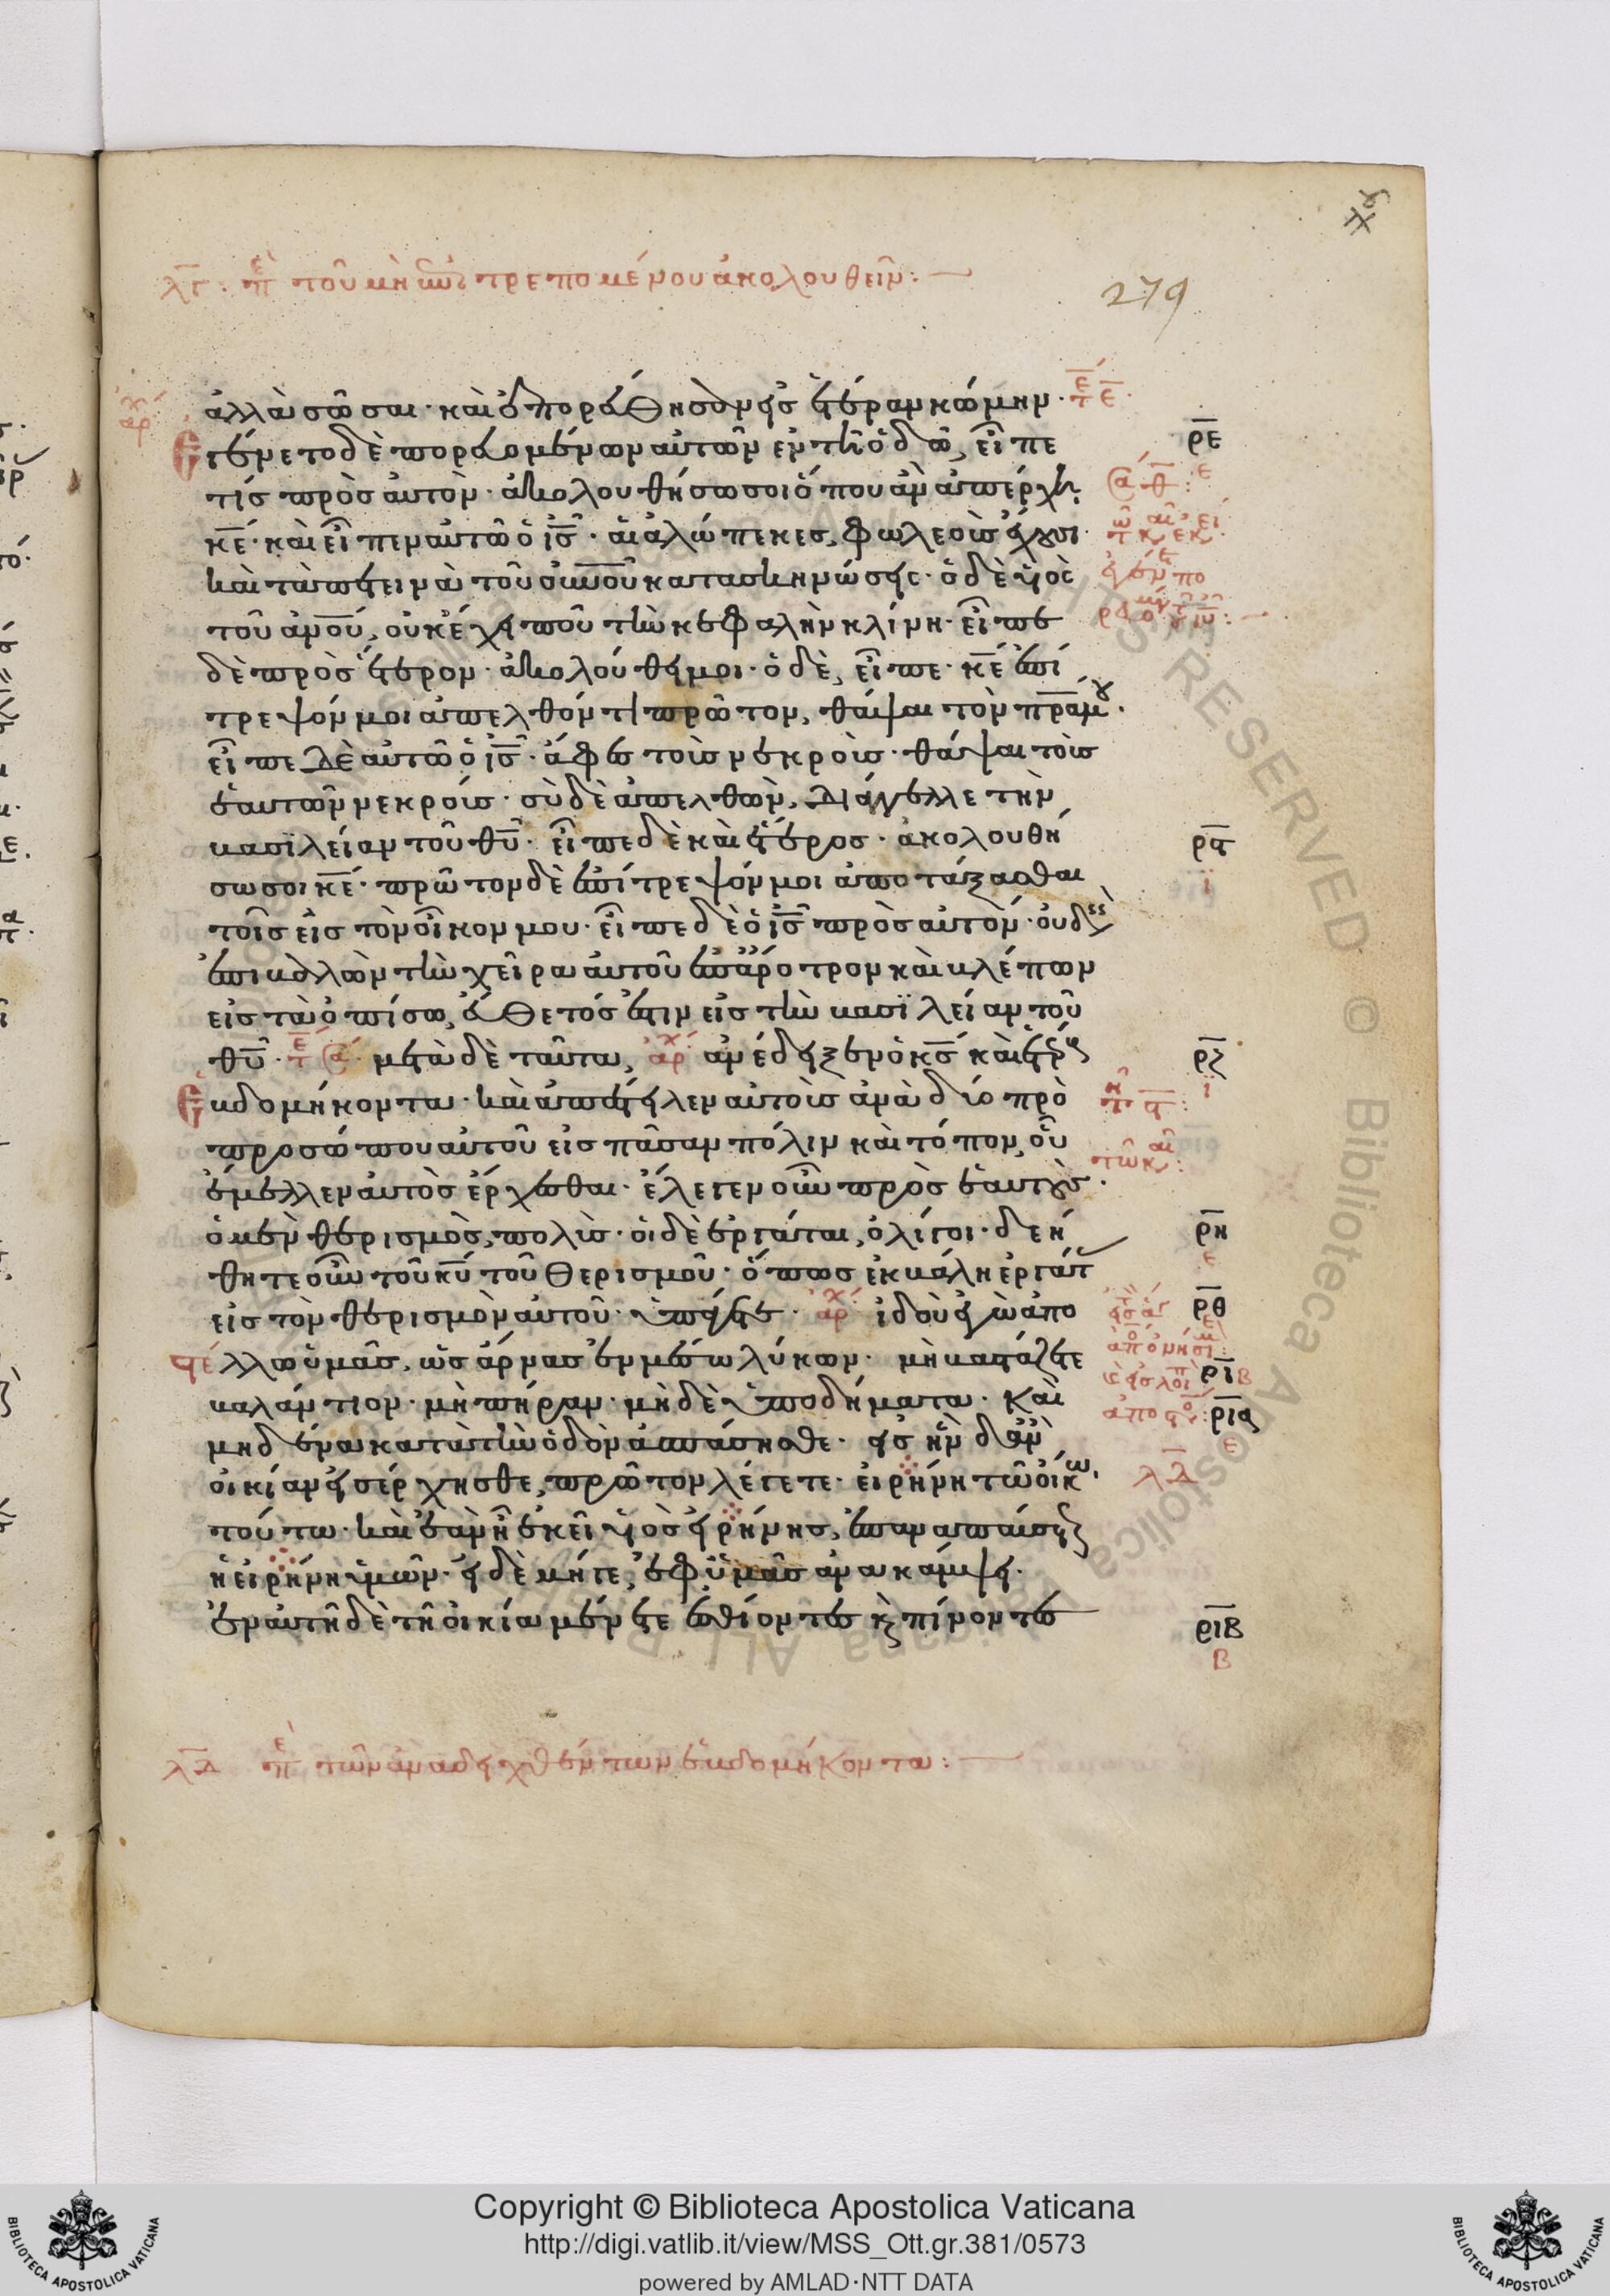 λγ: πε τοῦ μὴ ἐπιτρεπομένου ἀκολουθεῖν:
279
ἀλλὰ σῶσαι· καὶ ἐπορεύθησαν εἰς ἑτέραν κώμην·
ρε
Ἐγένετο δὲ πορευομένων αὐτῶν ἐν τῇ ὁδῶ, εἶπε
τίς πρὸς αὐτὸν· ἀκολουθήσω σοι ὅπου ἂν ἀπέρχῃ
κε· καὶ εἶπεν αὐτῶ ὁ ις· αἱ ἀλώπεκες, φωλεοὺς ἔχουσι
καὶ τὰ πετεινὰ τοῦ οὐνοῦ κατασκηνώσεις· ὁ δὲ υἱὸς
τοῦ ἀνου, οὐκ ἔχει ποῦ τὴν κεφαλὴν κλίνη· εἶπε
δὲ πρὸς ἕτερον· ἀκολούθει μοι· ὁ δὲ, εἶπε· κε ἐπί
τρεψόν μοι ἀπελθόντι πρῶτον, θάψαι τὸν πρα μου·
εἶπε δὲ αὐτῶ ὁ ις· ἄφες τοὺς νεκροὺς· θάψαι τοὺς
ἑαυτῶν νεκρούς· σὺ δὲ ἀπελθὼν, διάγγελλε τὴν
βασιλείαν τοῦ θυ· εἶπε δὲ καὶ ἕτερος· ἀκολουθή
ρϛ
ι
σω σοι κε· πρῶτον δὲ ἐπίτρεψόν μοι ἀποτάξασθαι
τοῖς εἰς τὸν οἶκον μου· εἶπε δὲ ὁ ις πρὸς αὐτὸν· οὐδεὶς
ἐπιβαλὼν τὴν χεῖρα αὐτοῦ ἐπ' ἄροτρον καὶ βλέπων
εἰς τὰ ὀπίσω, εὔθετός ἐστιν εἰς τὴν βασιλείαν τοῦ
θυ· μετὰ δὲ ταῦτα, ἀρχ ἀνέδειξεν ὁ κς καὶ ἑτέρους
ρζ
ι
Ἑβδομήκοντα· καὶ ἀπέστειλεν αὐτοὺς ἀνὰ δύο πρὸ
προσώπου αὐτοῦ εἰς πᾶσαν πόλιν καὶ τόπον, οὗ
ἔμελλεν αὐτὸς ἔρχεσθαι· ἔλεγεν οὖν πρὸς ἑαυτοὺς·
ὁ μὲν θερισμὸς, πολὺς· οἱ δὲ ἐργάται, ὀλίγοι· δεή
ρη
ε
θητε οὖν τοῦ κυ τοῦ θερισμοῦ· ὅπως ἐκβάλη ἐργάτ
εἰς τὸν θερισμὸν αὐτοῦ· ὑπάγετε· ἀρχ ἰδοὺ ἐγὼ ἀπο
ρθ
στέλλω ὑμᾶς, ὡς ἄρνας ἐν μέσω λύκων· μὴ βαστάζετε
ρι β
βαλάντιον· μὴ πήραν· μὴ δὲ ὑποδήματα· Καὶ
ρια
ε
μηδένα κατὰ τὴν ὁδὸν ἀσπάσησθε· εἰς ἣν δ' ἂν
οἰκίαν εἰσέρχησθε, πρῶτον λέγετε· εἰρήνη τῶ οἴκω
λδ
τούτω· καὶ ἐὰν ἦ ἐκεῖ υἱὸς εἰρήνης, ἐπαναπαύσεται
ἡ εἰρήνη ὑμῶν· εἰ δὲ μήγε, ἐφ' ὑμᾶς ἀνακάμψει·
ἐν αὐτῆ δὲ τῆ οἰκία μένετε ἐσθίοντες κ πίνοντες
ριβ
β
λδ πε τῶν ἀναδειχθέντων ἑβδομήκοντα:
Copyright © Biblioteca Apostolica Vaticana
http://digi.vatlib.it/view/MSS_Ott.gr.381/0573
powered by AMLAD·NTT DATA
BIBLIOTECA APOSTOLICA VATICANA
BIBLIOTECA APOSTOLICA VATICANA